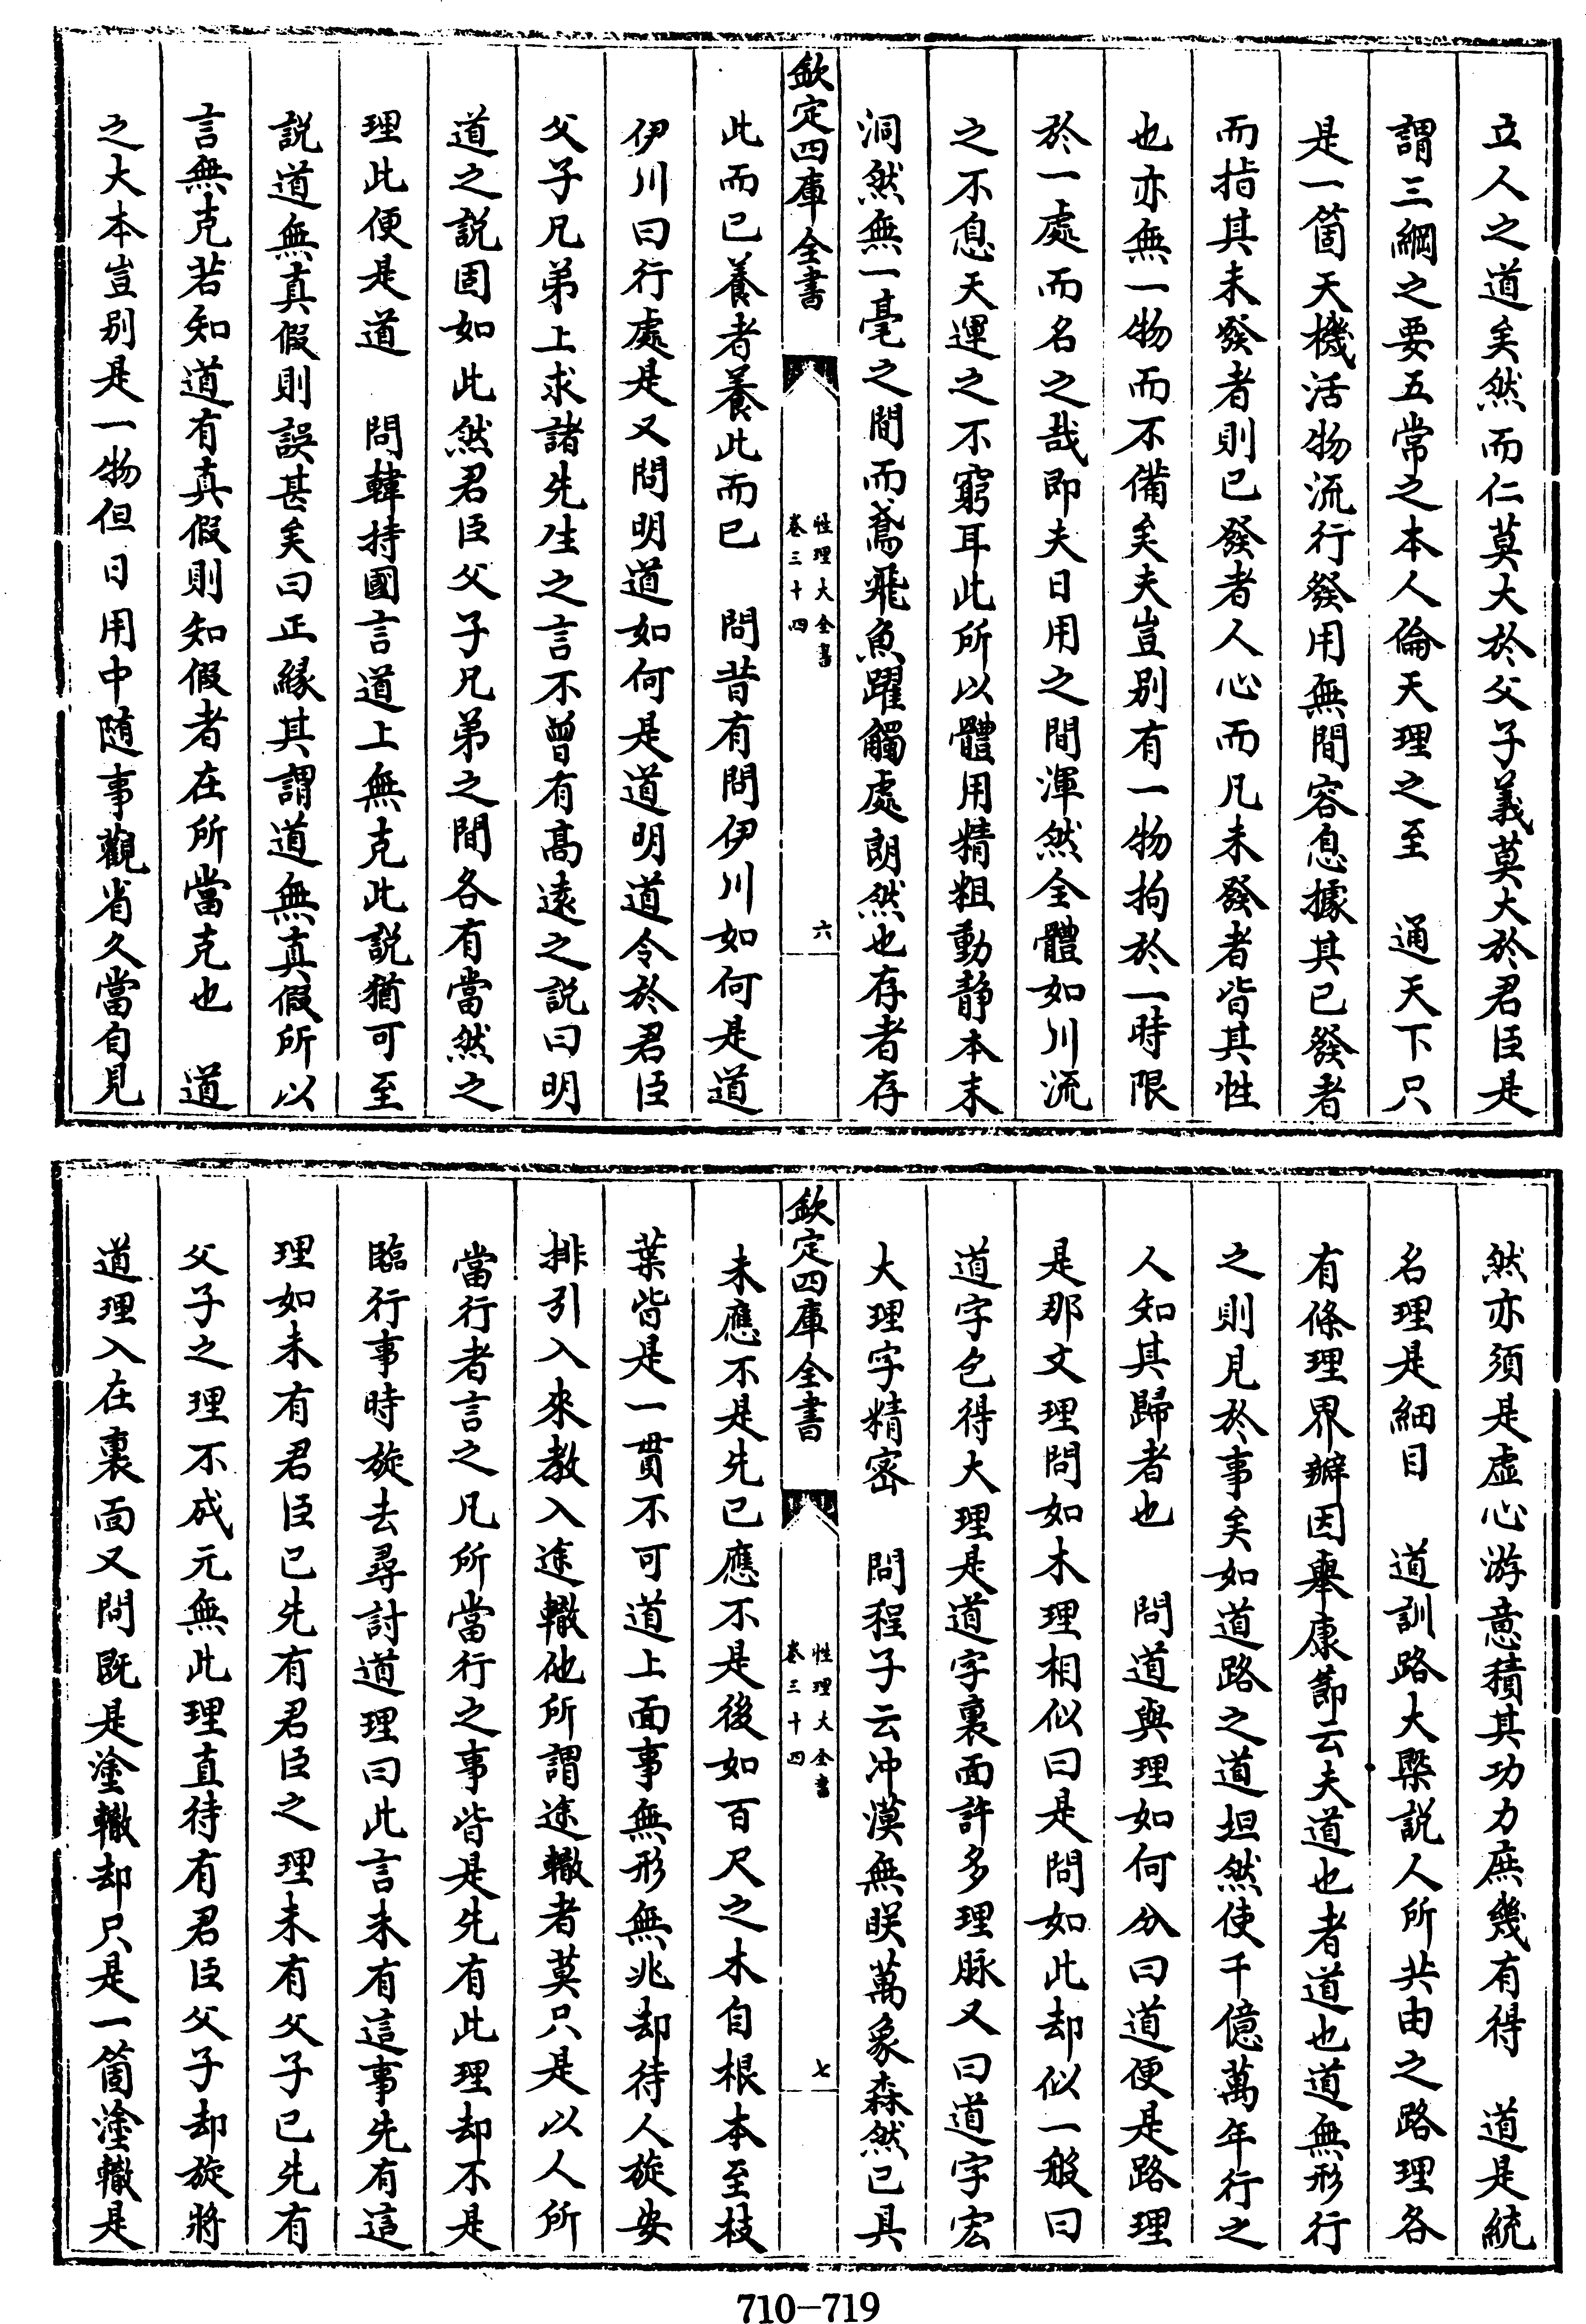 立人之道矣然而仁莫大於父子義莫大於君臣是
謂三綱之要五常之本人倫天理之至　通天下只
是一箇天機活物流行發用無間容息據其已發者
而指其未發者則已發者人心而凡未發者皆其性
也亦無一物而不備矣夫豈别有一物拘於一時限
於一處而名之哉即夫日用之間渾然全體如川流
之不息天運之不窮耳此所以體用精粗動静本末
洞然無一毫之間而鳶飛魚躍觸處朗然也存者存
欽定四庫全書
性理大全書
卷三十四
六
此而已養者養此而已　問昔有問伊川如何是道
伊川曰行處是又問明道如何是道明道令於君臣
父子兄弟上求諸先生之言不曾有高遠之説曰明
道之説固如此然君臣父子兄弟之間各有當然之
理此便是道　問韓持國言道上無克此説猶可至
説道無真假則誤甚矣曰正緣其謂道無真假所以
言無克若知道有真假則知假者在所當克也　道
之大本豈别是一物但日用中随事觀省久當自見
然亦須是虚心游意積其功力庶幾有得　道是統
名理是細目　道訓路大槩説人所共由之路理各
有條理界辦因舉康節云夫道也者道也道無形行
之則見於事矣如道路之道坦然使千億萬年行之
人知其歸者也　問道與理如何分曰道便是路理
是那文理問如木理相似曰是問如此却似一般曰
道字包得大理是道字裏面許多理脉又曰道字宏
大理字精密　問程子云冲漠無眹萬象森然已具
欽定四庫全書
性理大全書
卷三十四
七
未應不是先已應不是後如百尺之木自根本至枝
葉皆是一貫不可道上面事無形無兆却待人旋安
排引入來教入途轍他所謂途轍者莫只是以人所
當行者言之凡所當行之事皆是先有此理却不是
臨行事時旋去尋討道理曰此言未有這事先有這
理如未有君臣已先有君臣之理未有父子已先有
父子之理不成元無此理直待有君臣父子却旋將
道理入在裏面又問既是塗轍却只是一箇塗轍是
710-719